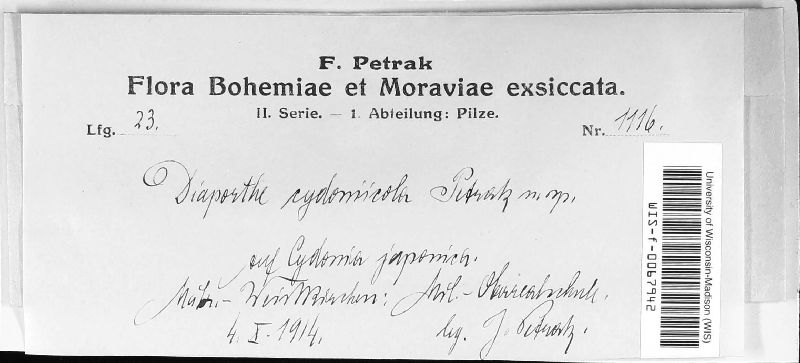 F. Petrak
Flora Bohemiae et Moraviae exsiccata.
II. Serie. — 1. Abteilung: Pilze.
Lfg. 23.
Nr. 1116.
Diaporthe cydoniicola Petrak n. sp.
auf Cydonia japonica.
Mähr.-Weisskirchen: Mil.-Oberrealschule,
4. V. 1914. leg. J. Petrak.
University of Wisconsin-Madison (WIS)
WIS-f-0067942